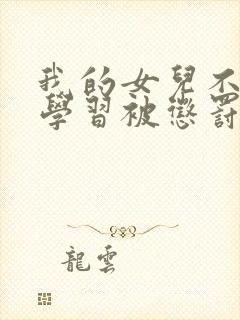 我的女兒不
學習被懲罰
龍雲